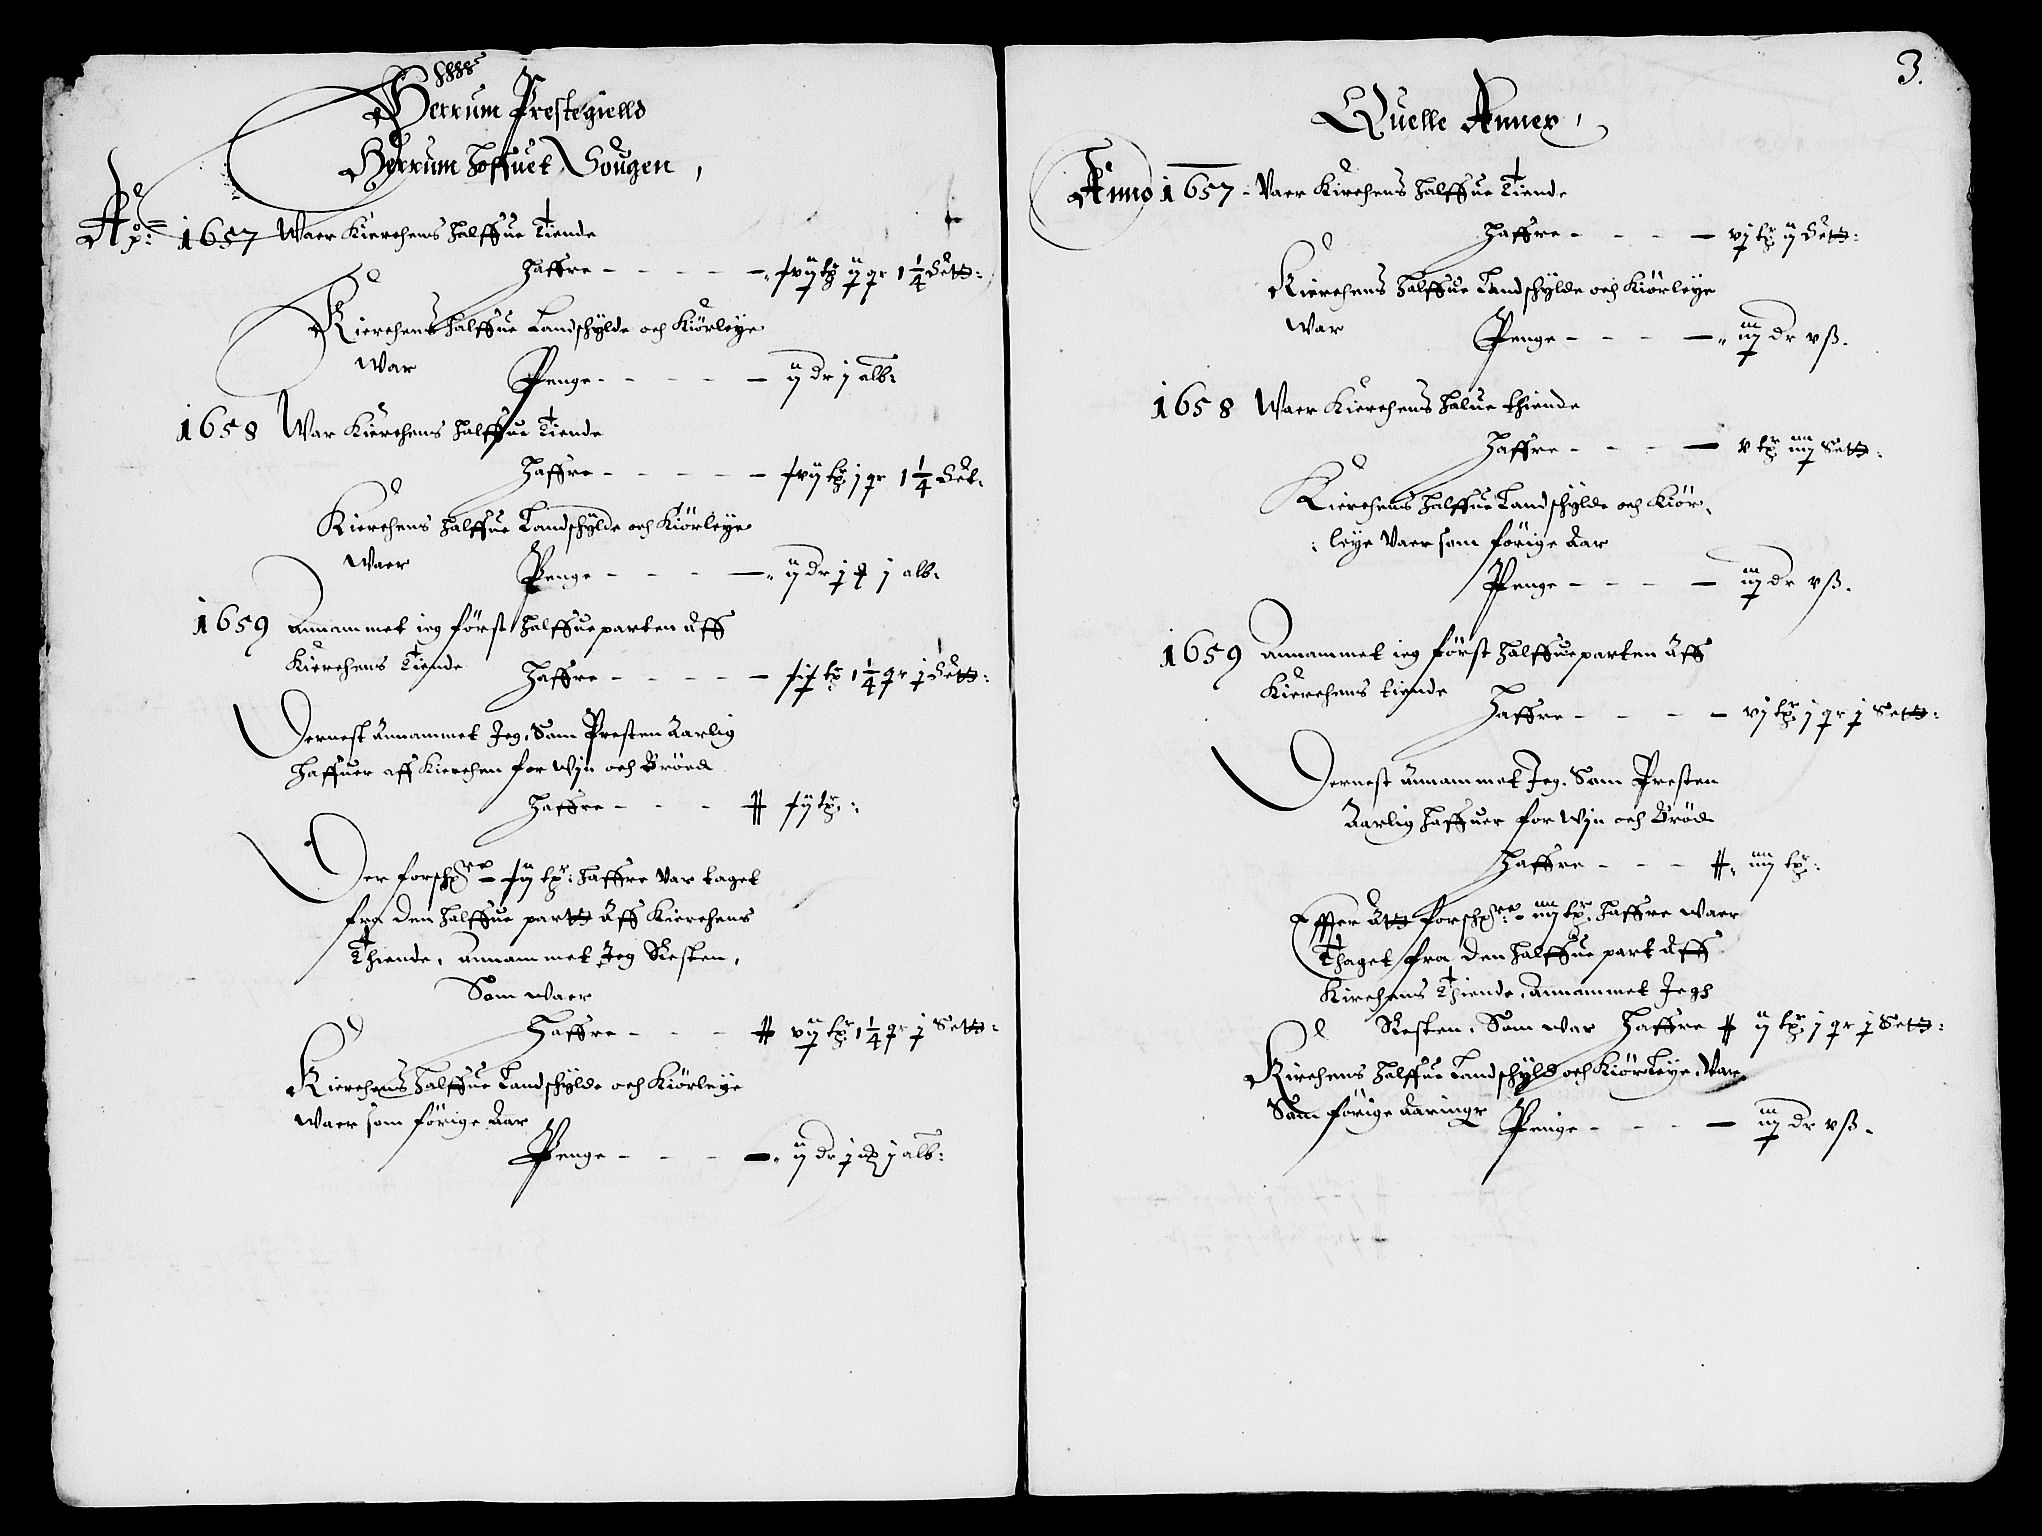 Herrum Prestegielld
Herrum Hoffuet Sougen,
Ao: 1657 Waer Kierchens Halffue Tiende
Haffre - - - - - xvij tr ij qr 1 1/4 Sett:
Kierchens Halffue Landschylde och Kiörleye
War Penge - - - - - ij dr j alb:
1658 War Kierchens Halffue Tiende
Haffre - - - - - xvij tr j qr 1 1/4 Set:
Kierchens Halffue Landschylde och Kiörleye
Waer Penge - - - - ij dr j j alb:
1659 Annammet ieg först Halffueparten aff
Kierchens Tiende Haffre - - - - - xix tr 1 1/4 qr j Sett:
Dernest Annammet Jeg, Som Presten Aarlig
Haffuer aff Kierchen for Wijn och Bröed
Haffre - - - xij tr:
Der forsch.re xij tr: Haffre Var taget
fra den Halffue partt aff Kierchens
Thiende, annammet Jeg Resten,
Som Waer
Haffre - - - vij tr 1 1/4 qr j Sett:
Kierchens Halffue Landschylde och Kiörleye
Waer som förige Aar
Penge - - - - ij dr j j alb:
3.
Quelle Annex,
Anno 1657 - Vaer Kirchens Halffue Tiende
Haffre - - - - vj tr ij Sett:
Kierchens Halffue Landschylde och Kiörleye
War Penge - - - - iij dr v ß.
1658 Waer Kierchens Halue thiende
Haffre - - - - v tr iiij Sett:
Kierchens Halffue Landschylde och Kiör-
leye Vaer som förige Aar
Penge - - - - iij dr v ß.
1659 Annammet ieg först Halffueparten aff
Kierchens tiende Haffre - - - - vj tr j qr j Sett:
Dernest annammet Jeg, Som Presten
Aarlig Haffuer for Wijn och Bröd
Haffre - - - iiij tr:
Effter att forsch.re iiij tr. Haffre Waer
Thaget fra den Halffue part aff
Kirchens Thiende, Annammet Jegh
Resten, Som War Haffre ij tr j qr j Sett:
Kirchens Halffue Landschyld och Kiörleye, War
Som förige aaringr Penge - - - - iij dr v ß.